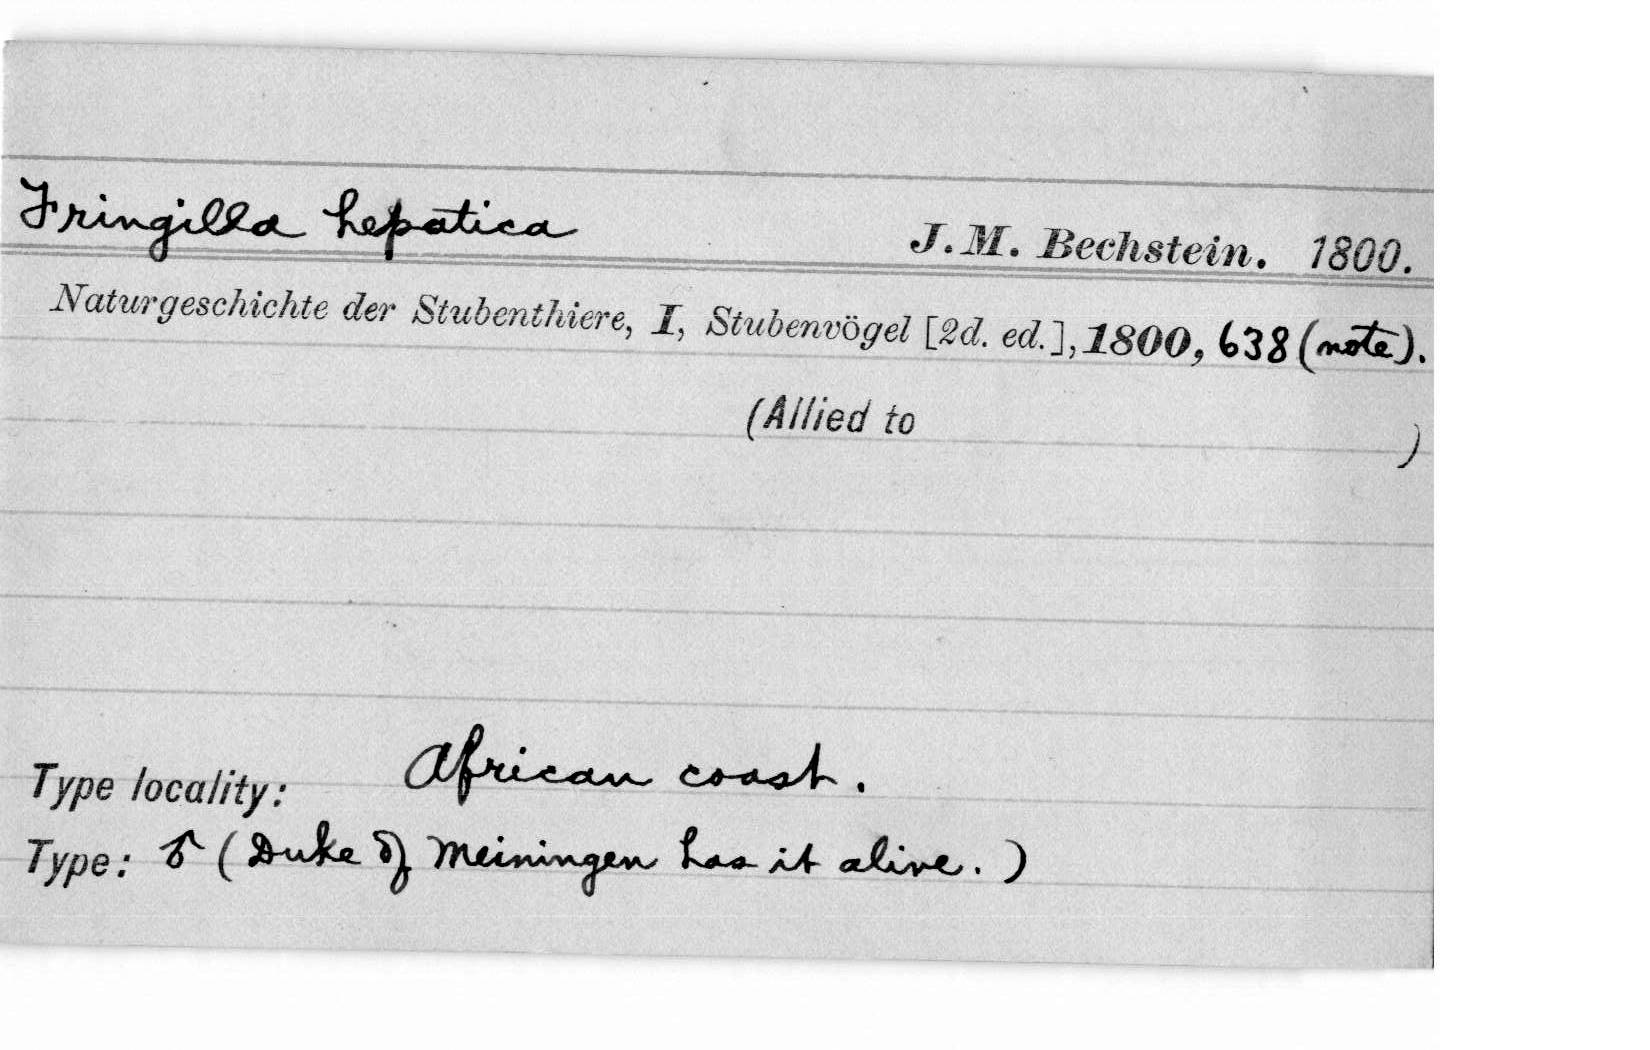 Fringilla hepatica J. M. Bechstein. 1800.
Naturgeschichte der Stubenthiere, I, Stubenvögel [2d. ed.], 1800, 638 (note).
(Allied to )
Type locality: African coast.
Type: ♂ (Duke of Meiningen has it alive.)